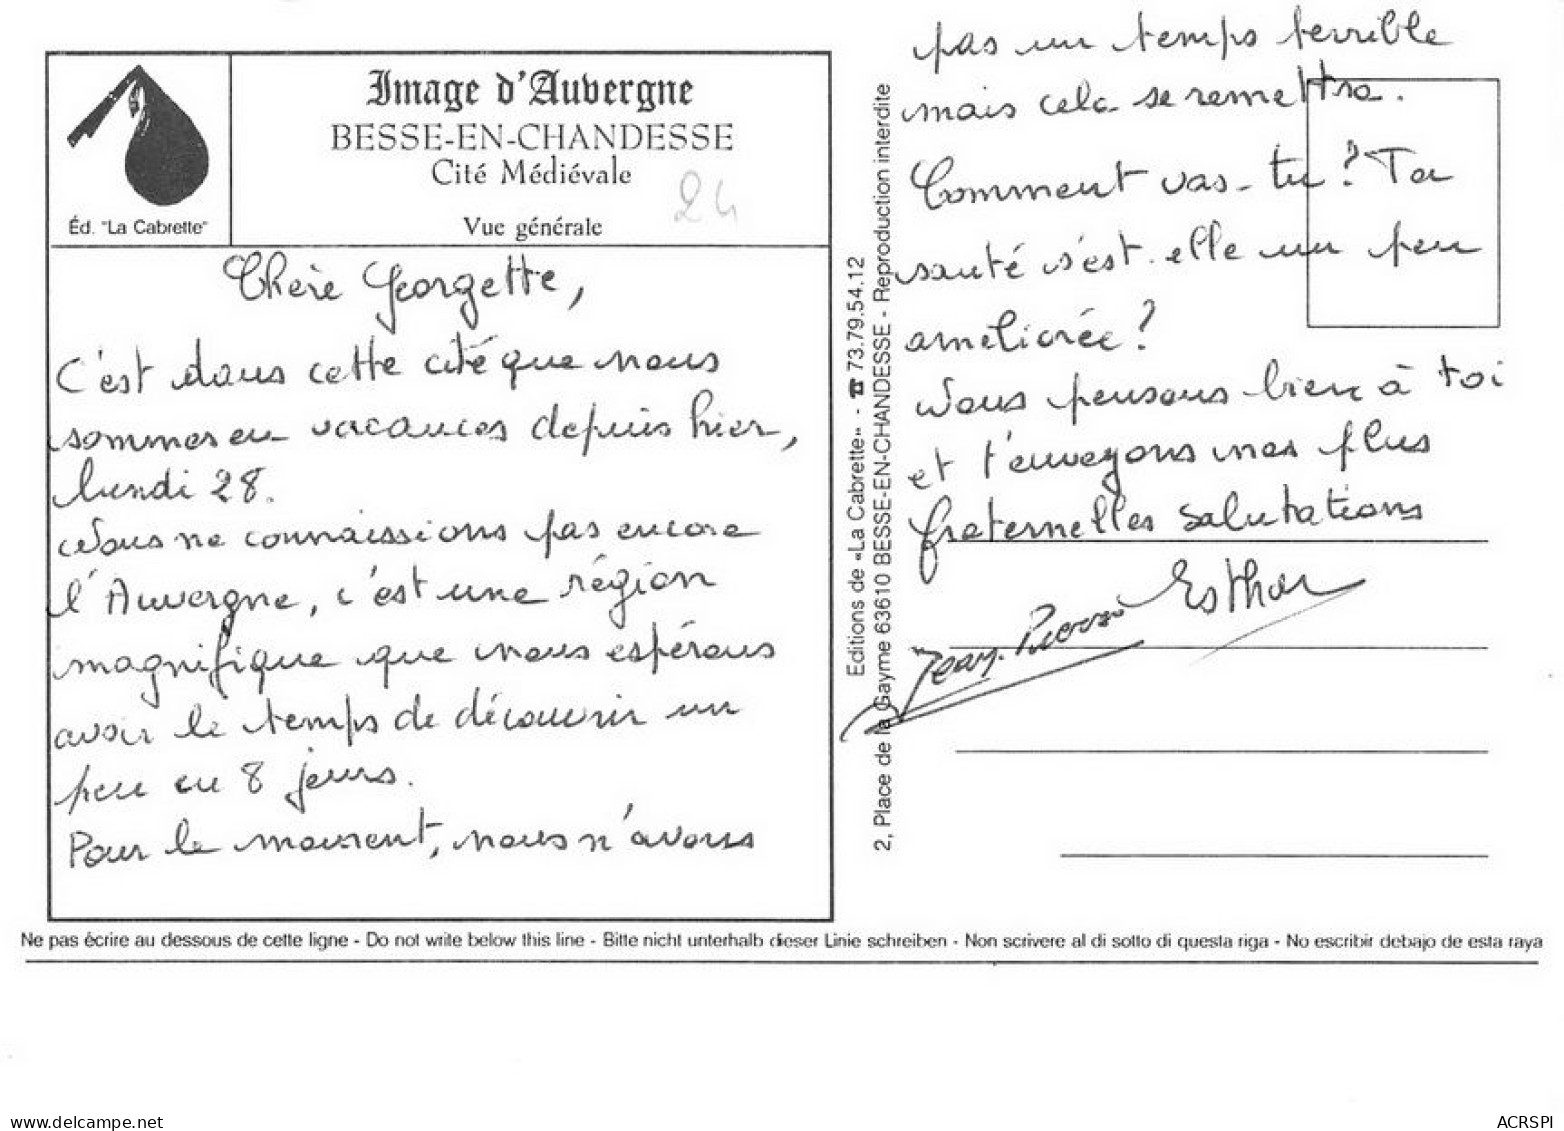 Image d'Auvergne
BESSE-EN-CHANDESSE
Cité Médiévale
Vue générale
24
Éd. "La Cabrette"
Chère Georgette,
C'est dans cette cité que nous
sommes en vacances depuis hier,
lundi 28.
Nous ne connaissions pas encore
l'Auvergne, c'est une région
magnifique que nous espérons
avoir le temps de découvrir un
peu en 8 jours.
Pour le moment, nous n'avons
pas un temps terrible
mais cela se remettra.
Comment vas-tu ? Ta
santé s'est-elle un peu
améliorée ?
Nous pensons bien à toi
et t'envoyons nos plus
fraternelles salutations
Jean-Pierre Esther
Editions de «La Cabrette» - ☎ 73.79.54.12
2, Place de la Gayme 63610 BESSE-EN-CHANDESSE - Reproduction interdite
Ne pas écrire au dessous de cette ligne - Do not write below this line - Bitte nicht unterhalb dieser Linie schreiben - Non scrivere al di sotto di questa riga - No escribir debajo de esta raya
www.delcampe.net
ACRSPI